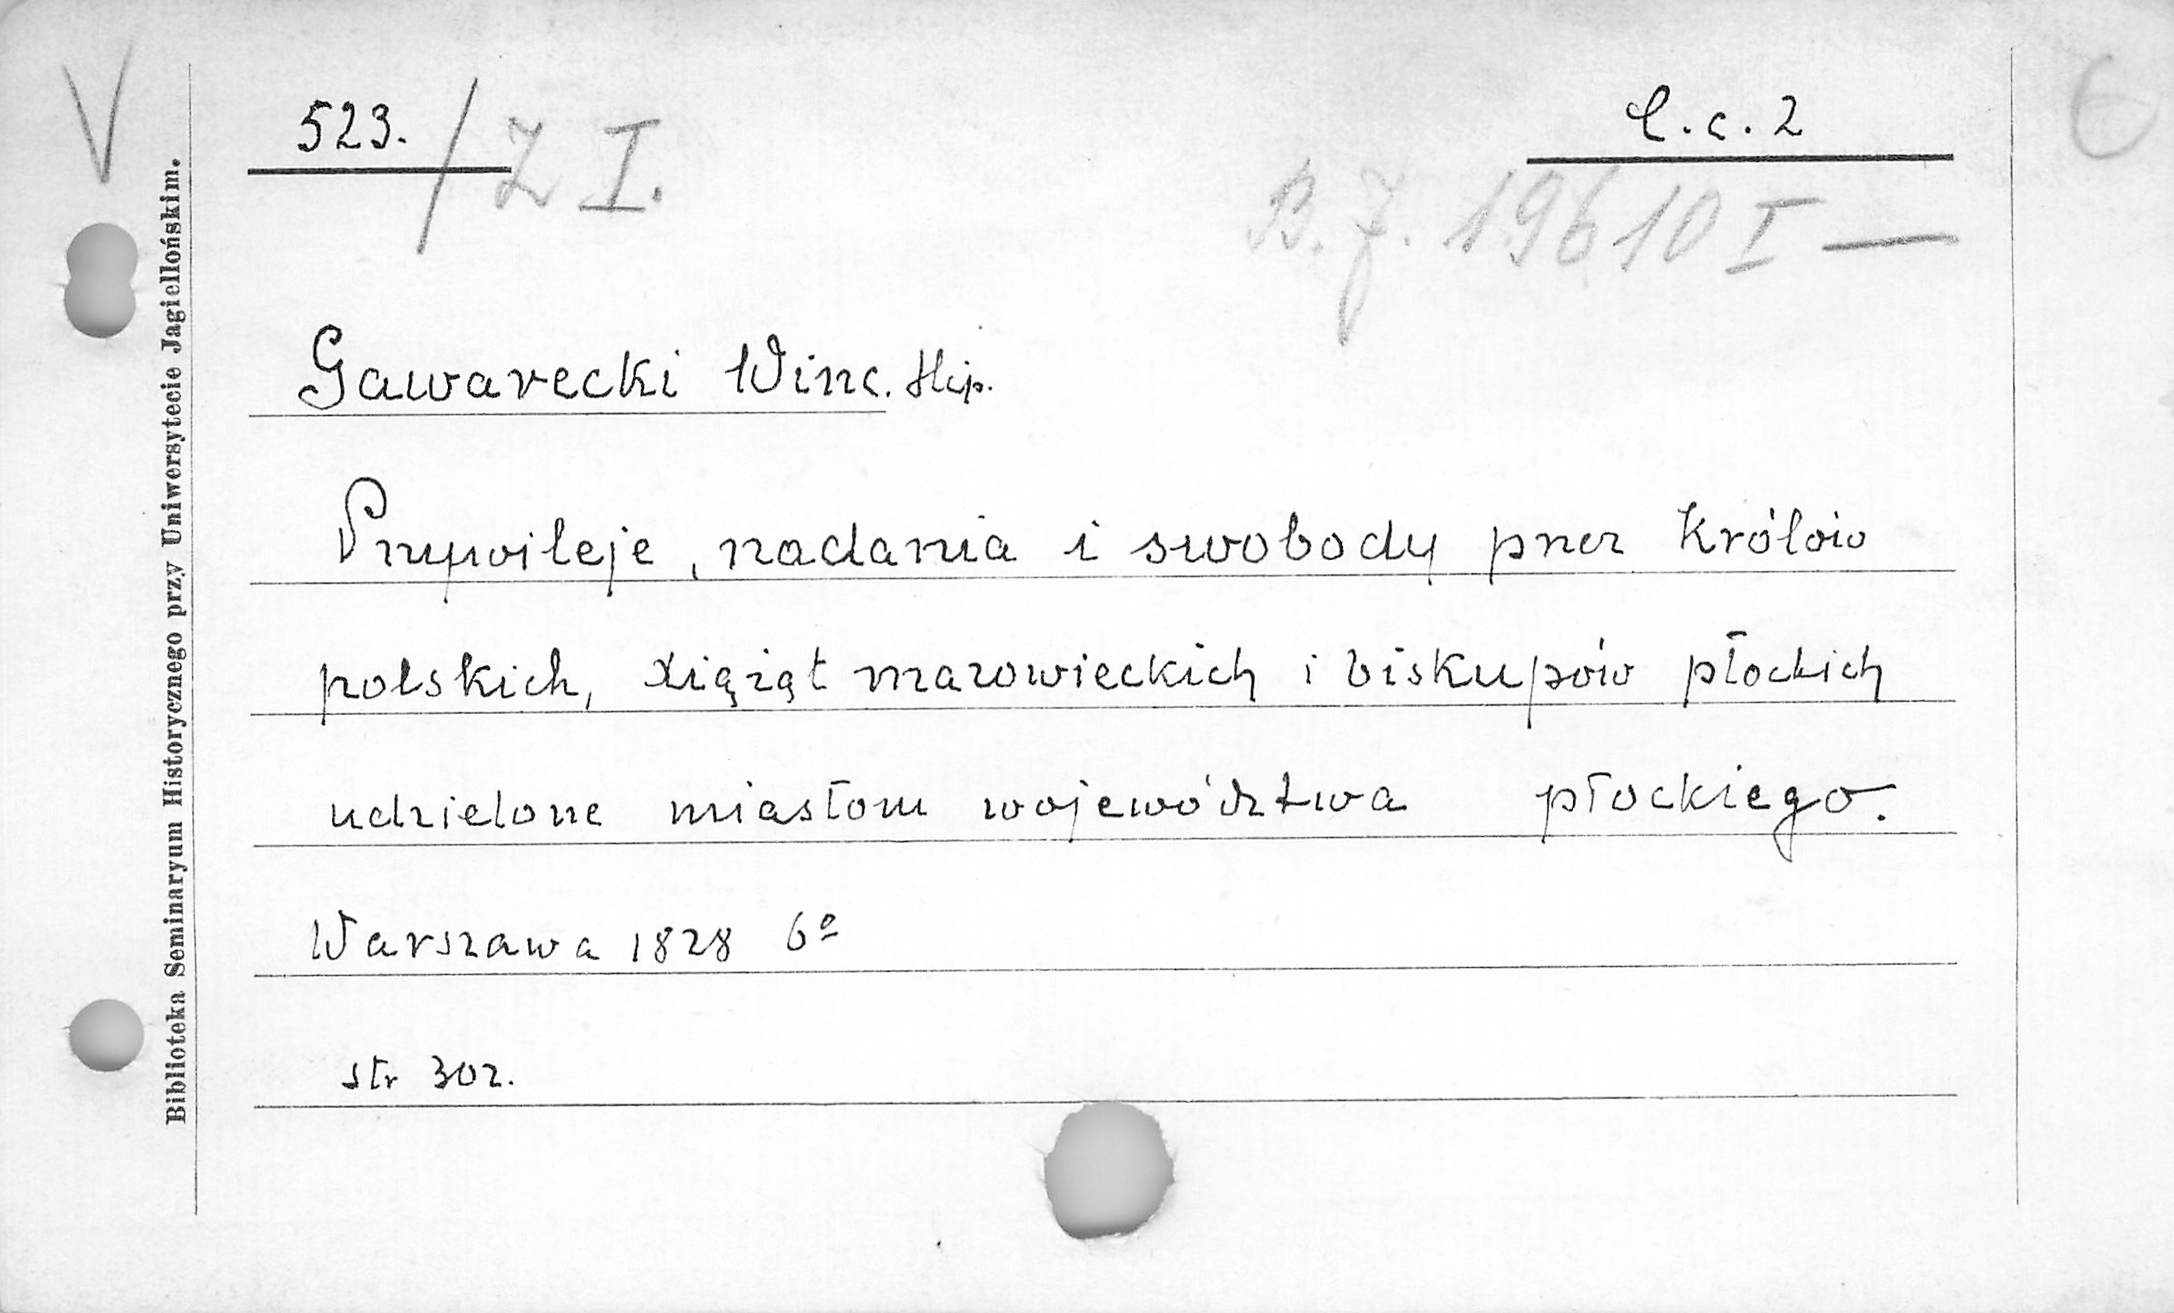 V
523. / Z I.
C. c. 2
B. J. 19610 I —
Gawarecki Winc. Hip.
Przywileje, nadania i swobody przez Królów
polskich, xiążąt mazowieckich i biskupów płockich
udzielone miastom województwa płockiego.
Warszawa 1828 6º
str 302.
Biblioteka Seminaryum Historycznego przy Uniwersytecie Jagiellońskim.